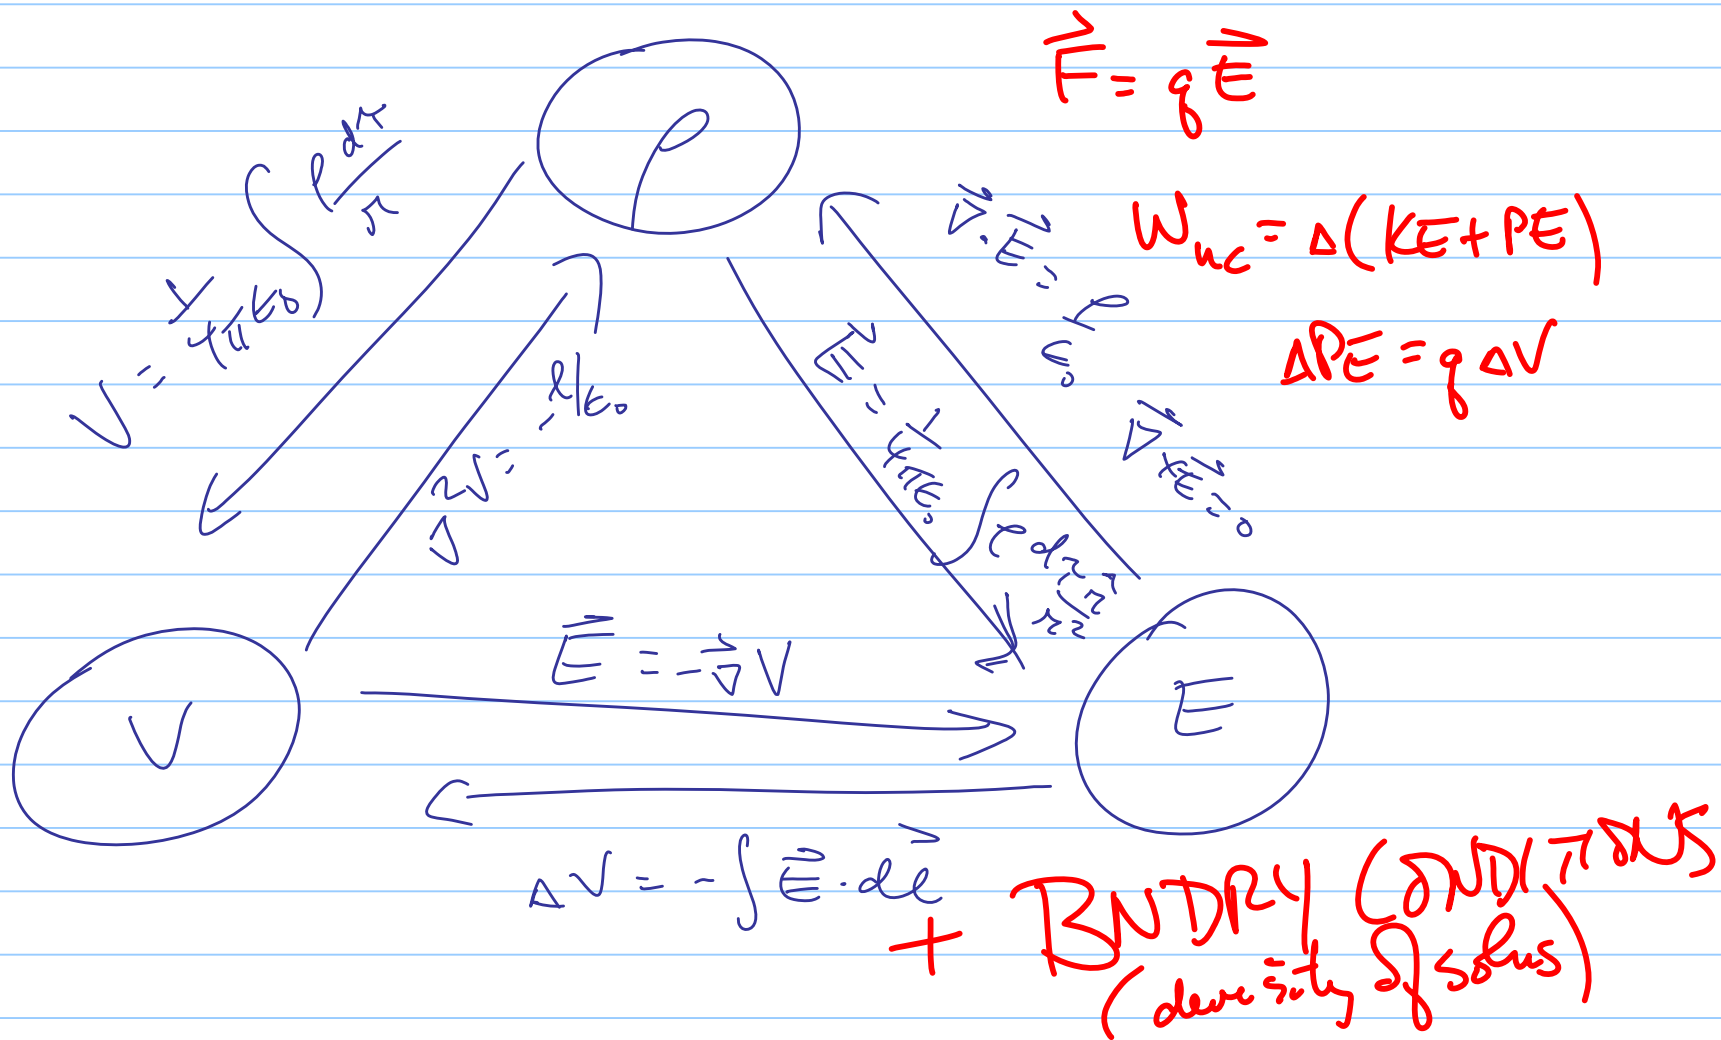 ρ
V = 1/4πε₀ ∫ρ dτ/r
∇²V = -ρ/ε₀
E⃗ = 1/4πε₀ ∫ρ dτ r̂/r²
∇⃗·E⃗ = ρ/ε₀
∇⃗×E⃗ = 0
V
E⃗ = -∇⃗V
E
ΔV = -∫E⃗·dℓ⃗
F⃗ = qE⃗
W_nc = Δ(KE+PE)
ΔPE = qΔV
+ BNDRY CONDITIONS